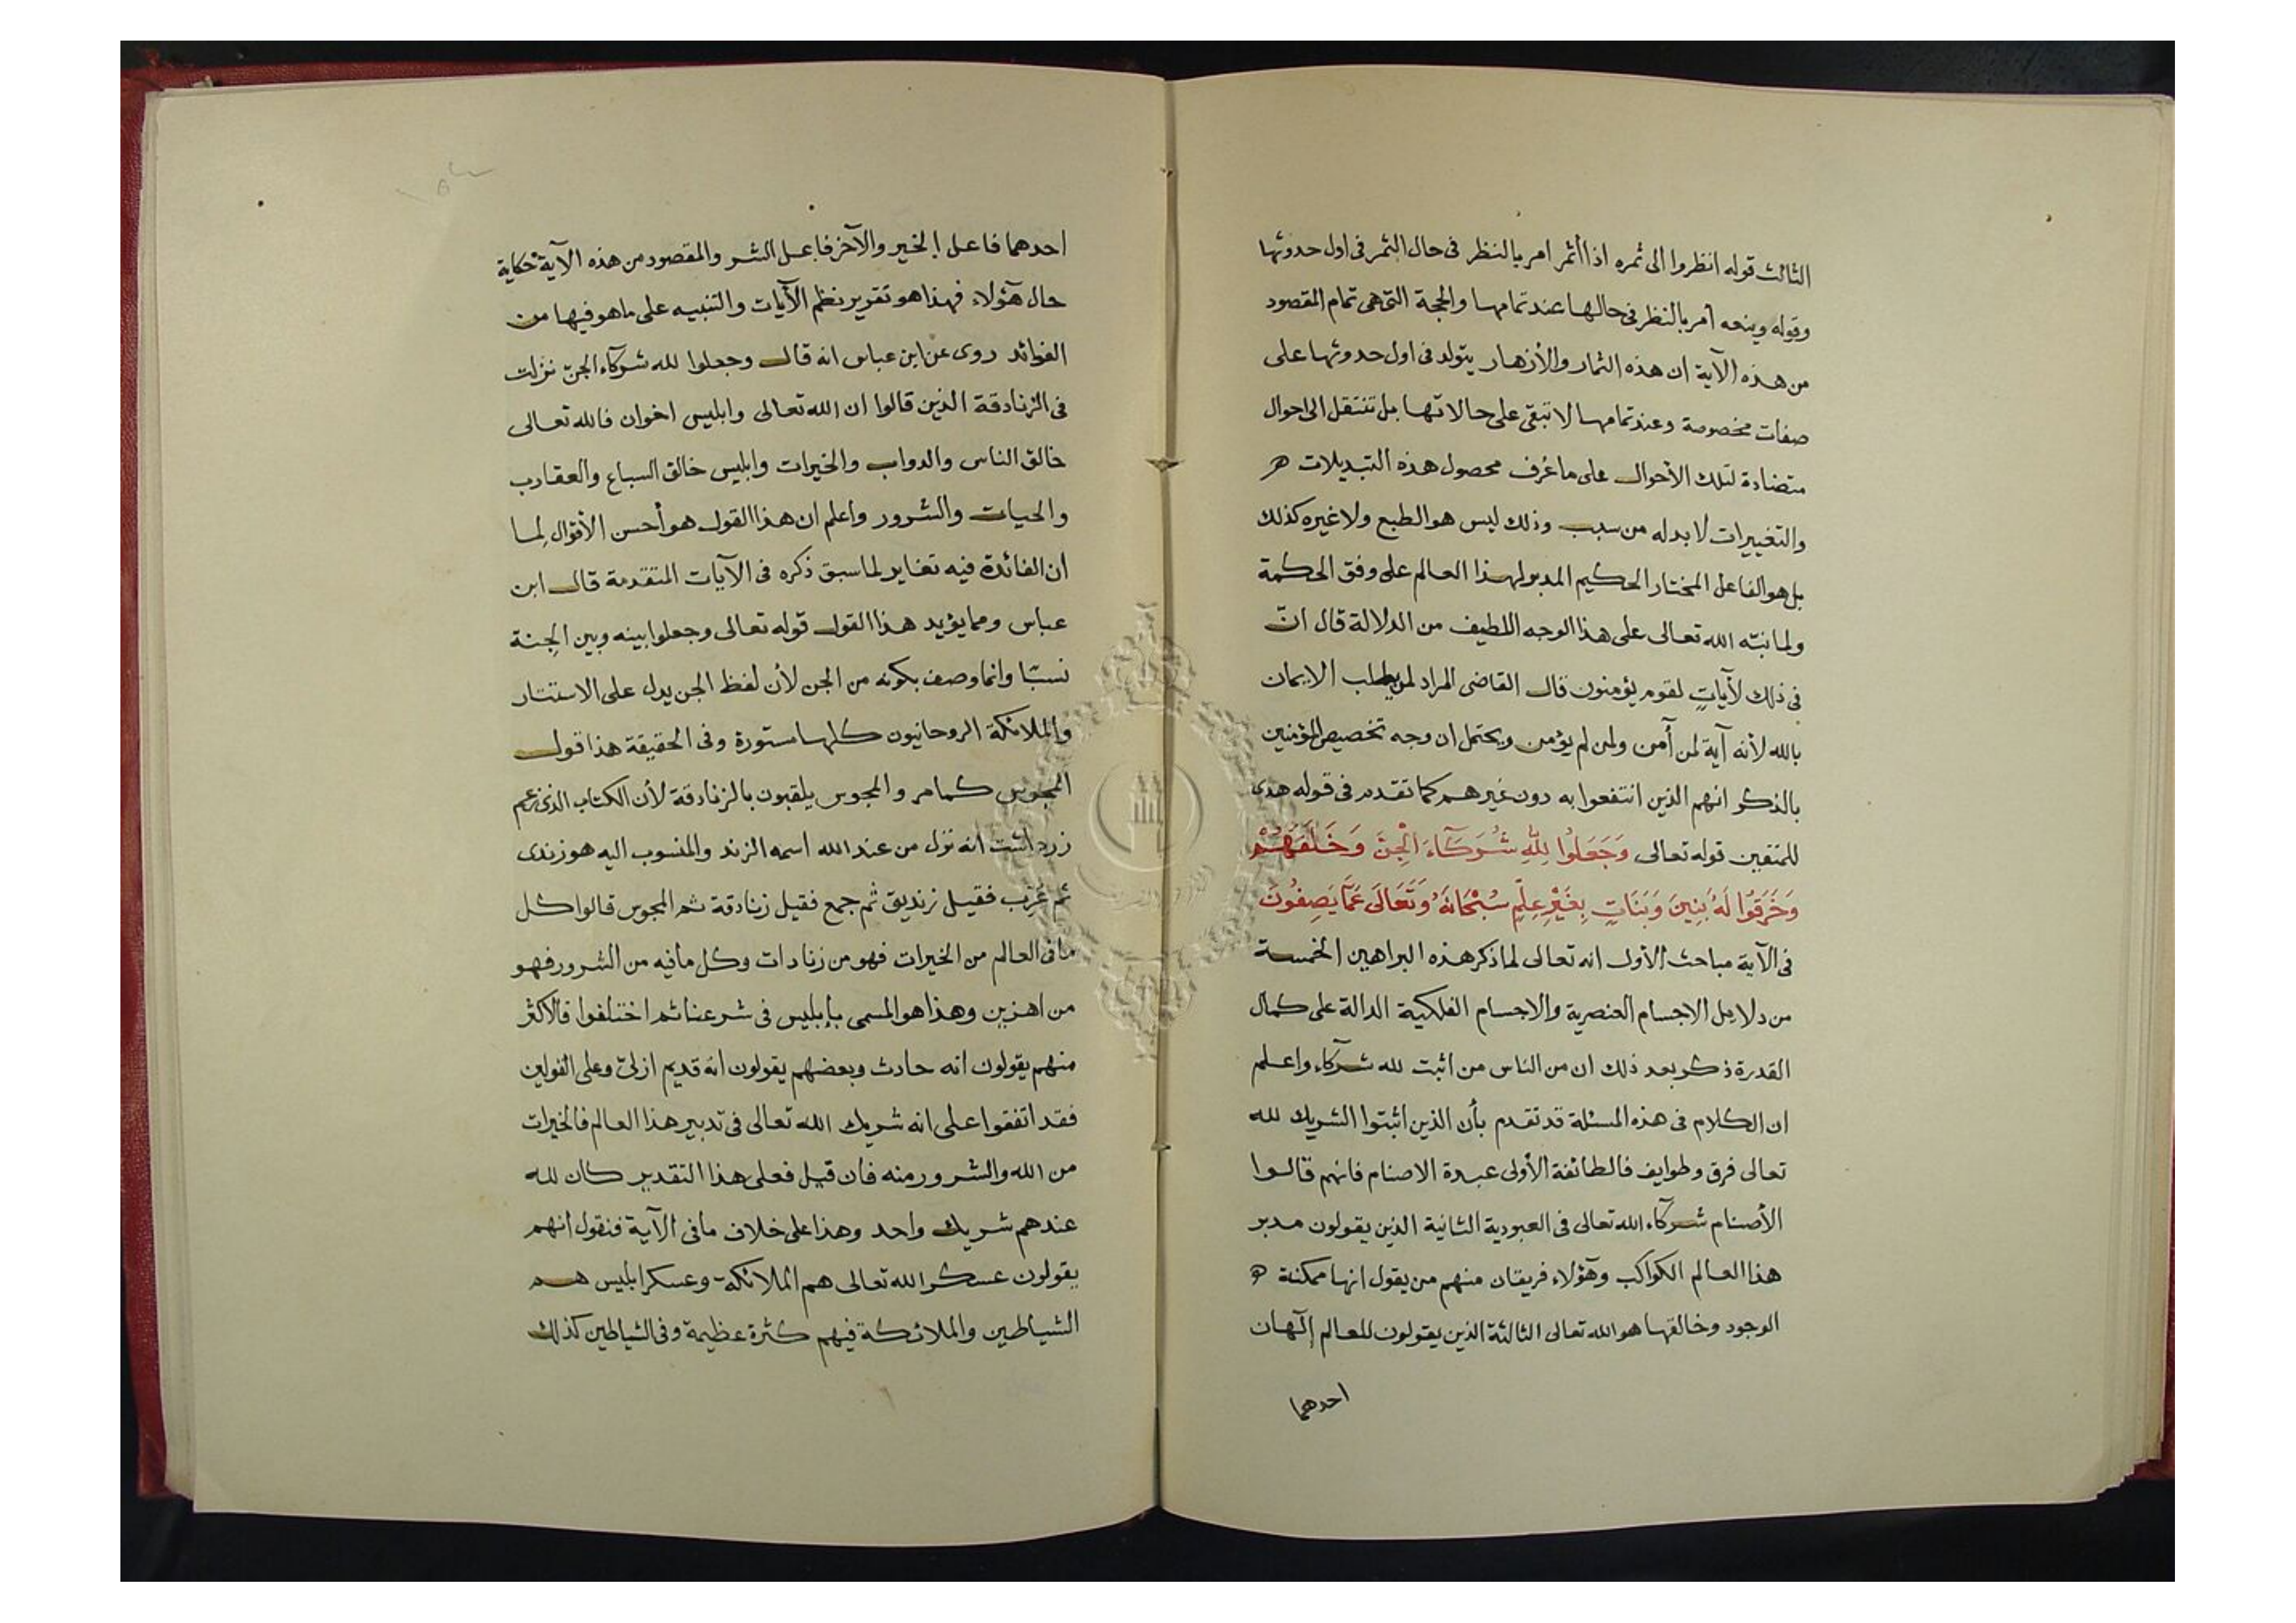 الثالث قوله انظروا الى ثمره اذا أثمر امر بالنظر فى حال الثمر فى اول حدوثها
وقوله وينعه أمر بالنظر فى حالها عند تمامها والحجة التى هى تمام المقصود
من هذه الآية ان هذه الثمار والأزهار يتولد فى اول حدوثها على
صفات مخصوصة وعند تمامها لا تبقى على حالاتها بل تنتقل الى احوال
متضادة لتلك الأحوال على ما عُرف محصول هذه التبديلات
والتغييرات لا بد له من سبب وذلك ليس هو الطبع ولا غيره كذلك
بل هو الفاعل المختار الحكيم المدبر لهذا العالم على وفق الحكمة
ولما نبّه الله تعالى على هذا الوجه اللطيف من الدلالة قال انّ
فى ذلك لآياتٍ لقوم يؤمنون قال القاضى المراد لمن يطلب الايمان
بالله لأنه آية لمن أمن ولمن لم يؤمن ويحتمل ان وجه تخصيص المؤمنين
بالذكر انهم الذين انتفعوا به دون غيرهم كما تقدم فى قوله هدى
للمتقين قوله تعالى وَجَعَلُوا لِلّٰهِ شُرَكَآءَ الْجِنَّ وَخَلَقَهُمْ
وَخَرَقُوا لَهُ بَنِينَ وَبَنَاتٍ بِغَيْرِ عِلْمٍ سُبْحَانَهُ وَتَعَالَى عَمَّا يَصِفُونَ
فى الآية مباحث الأول انه تعالى لما ذكر هذه البراهين الخمسة
من دلايل الاجسام العنصرية والاجسام الفلكية الدالة على كمال
القدرة ذكر بعد ذلك ان من الناس من اثبت لله شركآء واعلم
ان الكلام فى هذه المسئلة قد تقدم بأن الذين اثبتوا الشريك لله
تعالى فرق وطوايف فالطائفة الأولى عبدة الاصنام فانهم قالوا
الأصنام شركآء الله تعالى فى العبودية الثانية الذين يقولون مدبر
هذا العالم الكواكب وهؤلاء فريقان منهم من يقول انها ممكنة
الوجود وخالقها هو الله تعالى الثالثة الذين يقولون للعالم إلٓهان
احدهما
احدهما فاعل الخير والآخر فاعل الشر والمقصود من هذه الآية حكاية
حال هٓؤلاء فهذا هو تقرير نظم الآيات والتنبيه على ما هو فيها من
الفوائد روى عن ابن عباس انه قال وجعلوا لله شركآء الجنّ نزلت
فى الزنادقة الذين قالوا ان الله تعالى وابليس اخوان فالله تعالى
خالق الناس والدواب والخيرات وابليس خالق السباع والعقارب
والحيات والشرور واعلم ان هذا القول هو أحسن الأقوال لِما
أن الفائدة فيه تغاير لما سبق ذكره فى الآيات المتقدمة قال ابن
عباس ومما يؤيد هذا القول قوله تعالى وجعلوا بينه وبين الجِنة
نسبًا وانما وصف بكونه من الجن لأن لفظ الجن يدل على الاستتار
والملائكة الروحانيون كلها مستورة وفى الحقيقة هذا قول
المجوس كما مر والمجوس يلقبون بالزنادقة لأن الكتاب الذى زعم
زرداشت انه نزل من عند الله اسمه الزند والمنسوب اليه هو زندى
ثم عُرِّب فقيل زنديق ثم جمع فقيل زنادقة ثم المجوس قالوا كل
ما فى العالم من الخيرات فهو من زنادات وكل ما فيه من الشرور فهو
من اهزين وهذا هو المسمى بإبليس فى شرعنا ثم اختلفوا فالاكثر
منهم يقولون انه حادث وبعضهم يقولون انه قديم ازلىّ وعلى القولين
فقد اتفقوا على انه شريك الله تعالى فى تدبير هذا العالم فالخيرات
من الله والشرور منه فان قيل فعلى هذا التقدير كان لله
عندهم شريك واحد وهذا على خلاف ما فى الآية فنقول انهم
يقولون عسكر الله تعالى هم الملائكة وعسكر ابليس هم
الشياطين والملائكة فيهم كثرة عظيمة وفى الشياطين كذلك